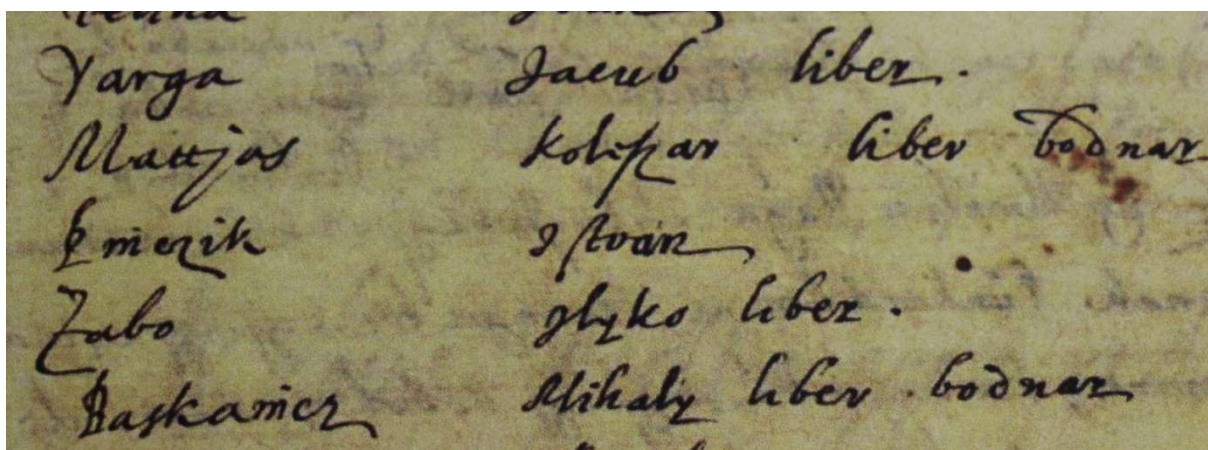 Varga Jacub liber.
Mattjas liber bodnar
Emerik Istvan
Zabo Ilyko liber.
Mihaly liber bodnar